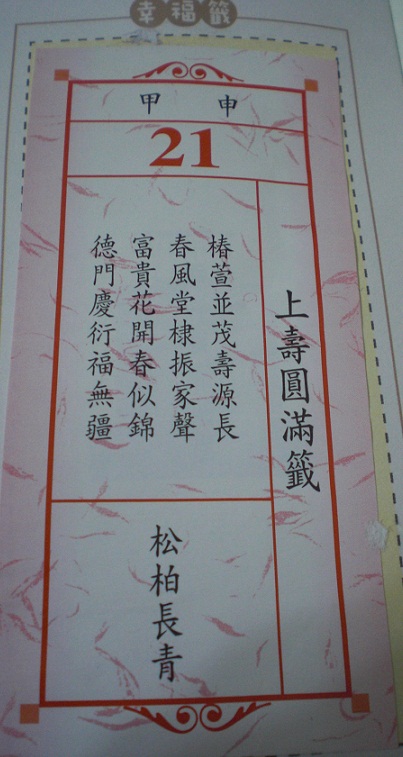 幸福籤
甲申
21
上壽圓滿籤
椿萱並茂壽源長
春風堂棣振家聲
富貴花開春似錦
德門慶衍福無疆
松柏長青